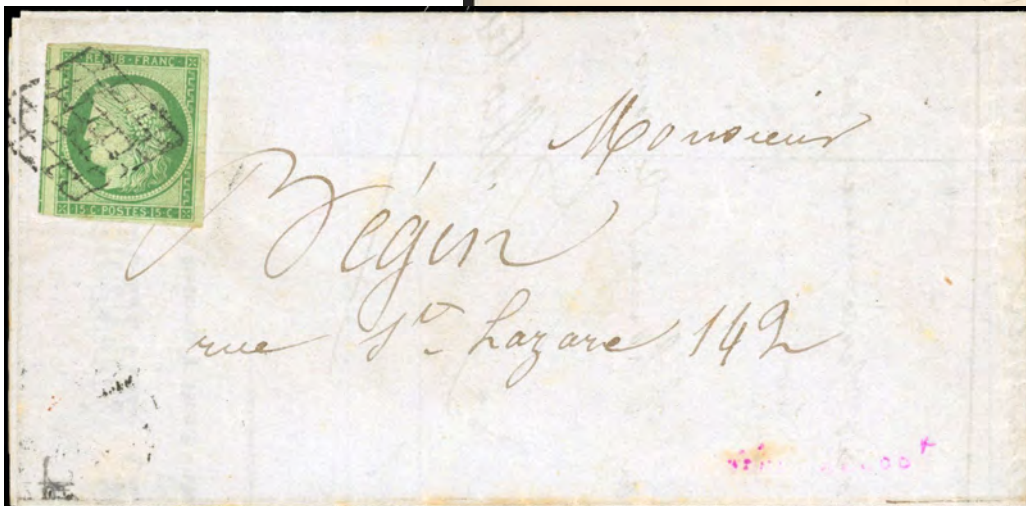 REPUB·FRANC·
15 C·POSTES·15 C·
Monsieur
Bégin
rue St Lazare 142